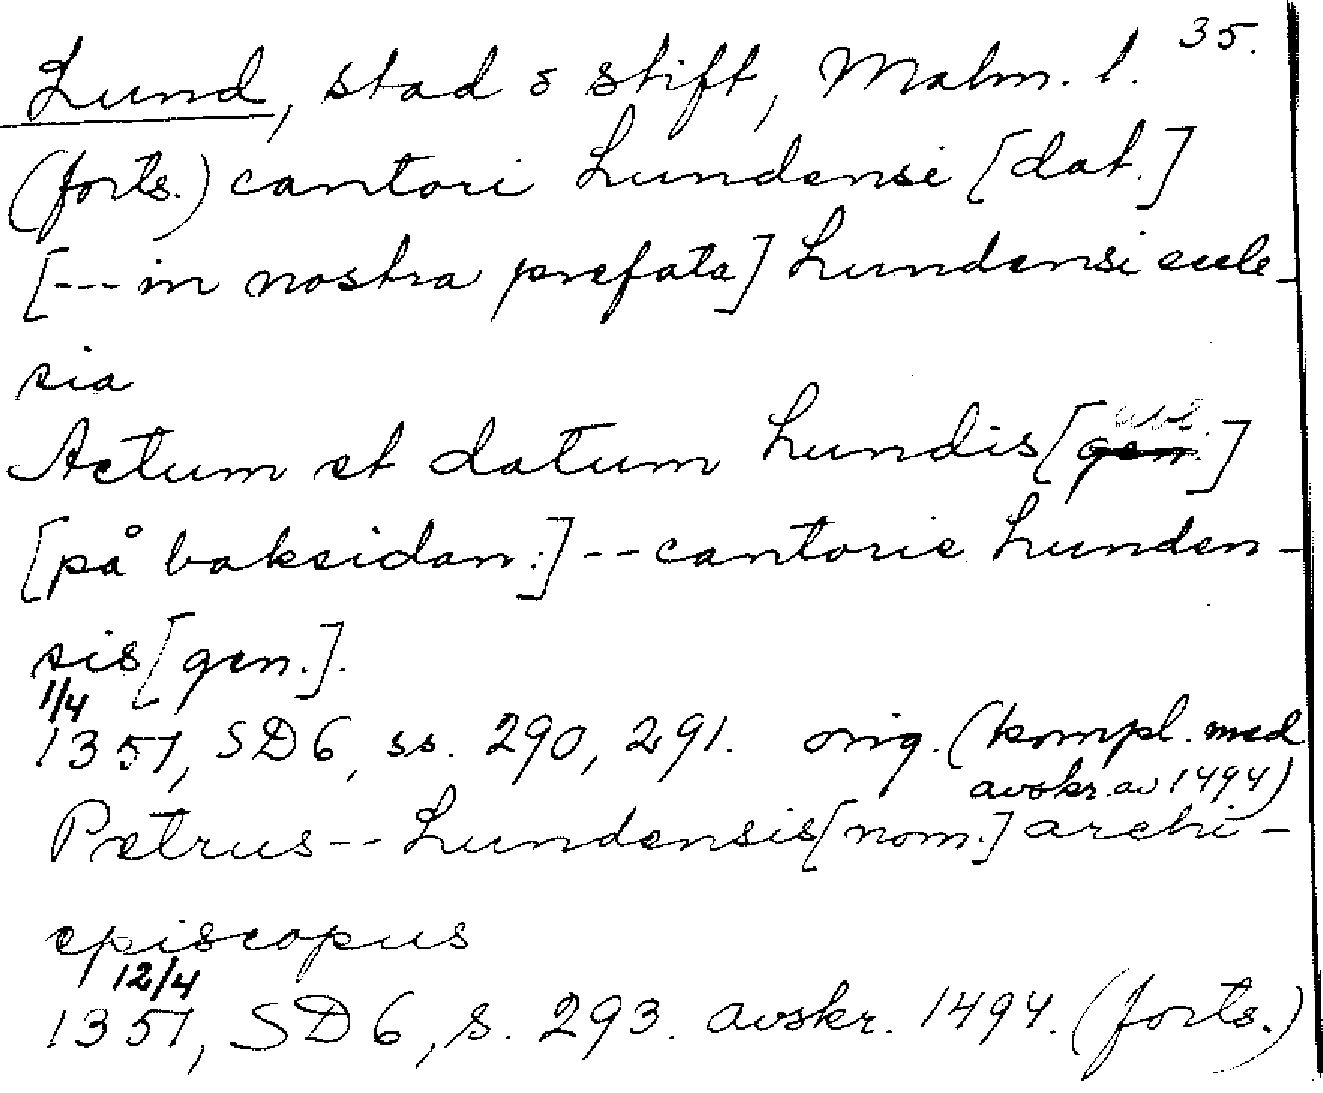 35.
Lund, stad o stift, Malm. l.
(forts.) cantori Lundensi [dat.]
[--- in nostra prefata] Lundensi eccle-
sia
Actum et datum Lundis [gen.]
[på baksidan:] -- cantorie Lunden-
sis [gen.].
1/4
1351, SD6, ss. 290, 291. orig. (kompl. med
avskr. av 1494)
Petrus -- Lundensis [nom.] archi-
episcopus
12/4
1351, SD6, s. 293. avskr. 1494. (forts.)